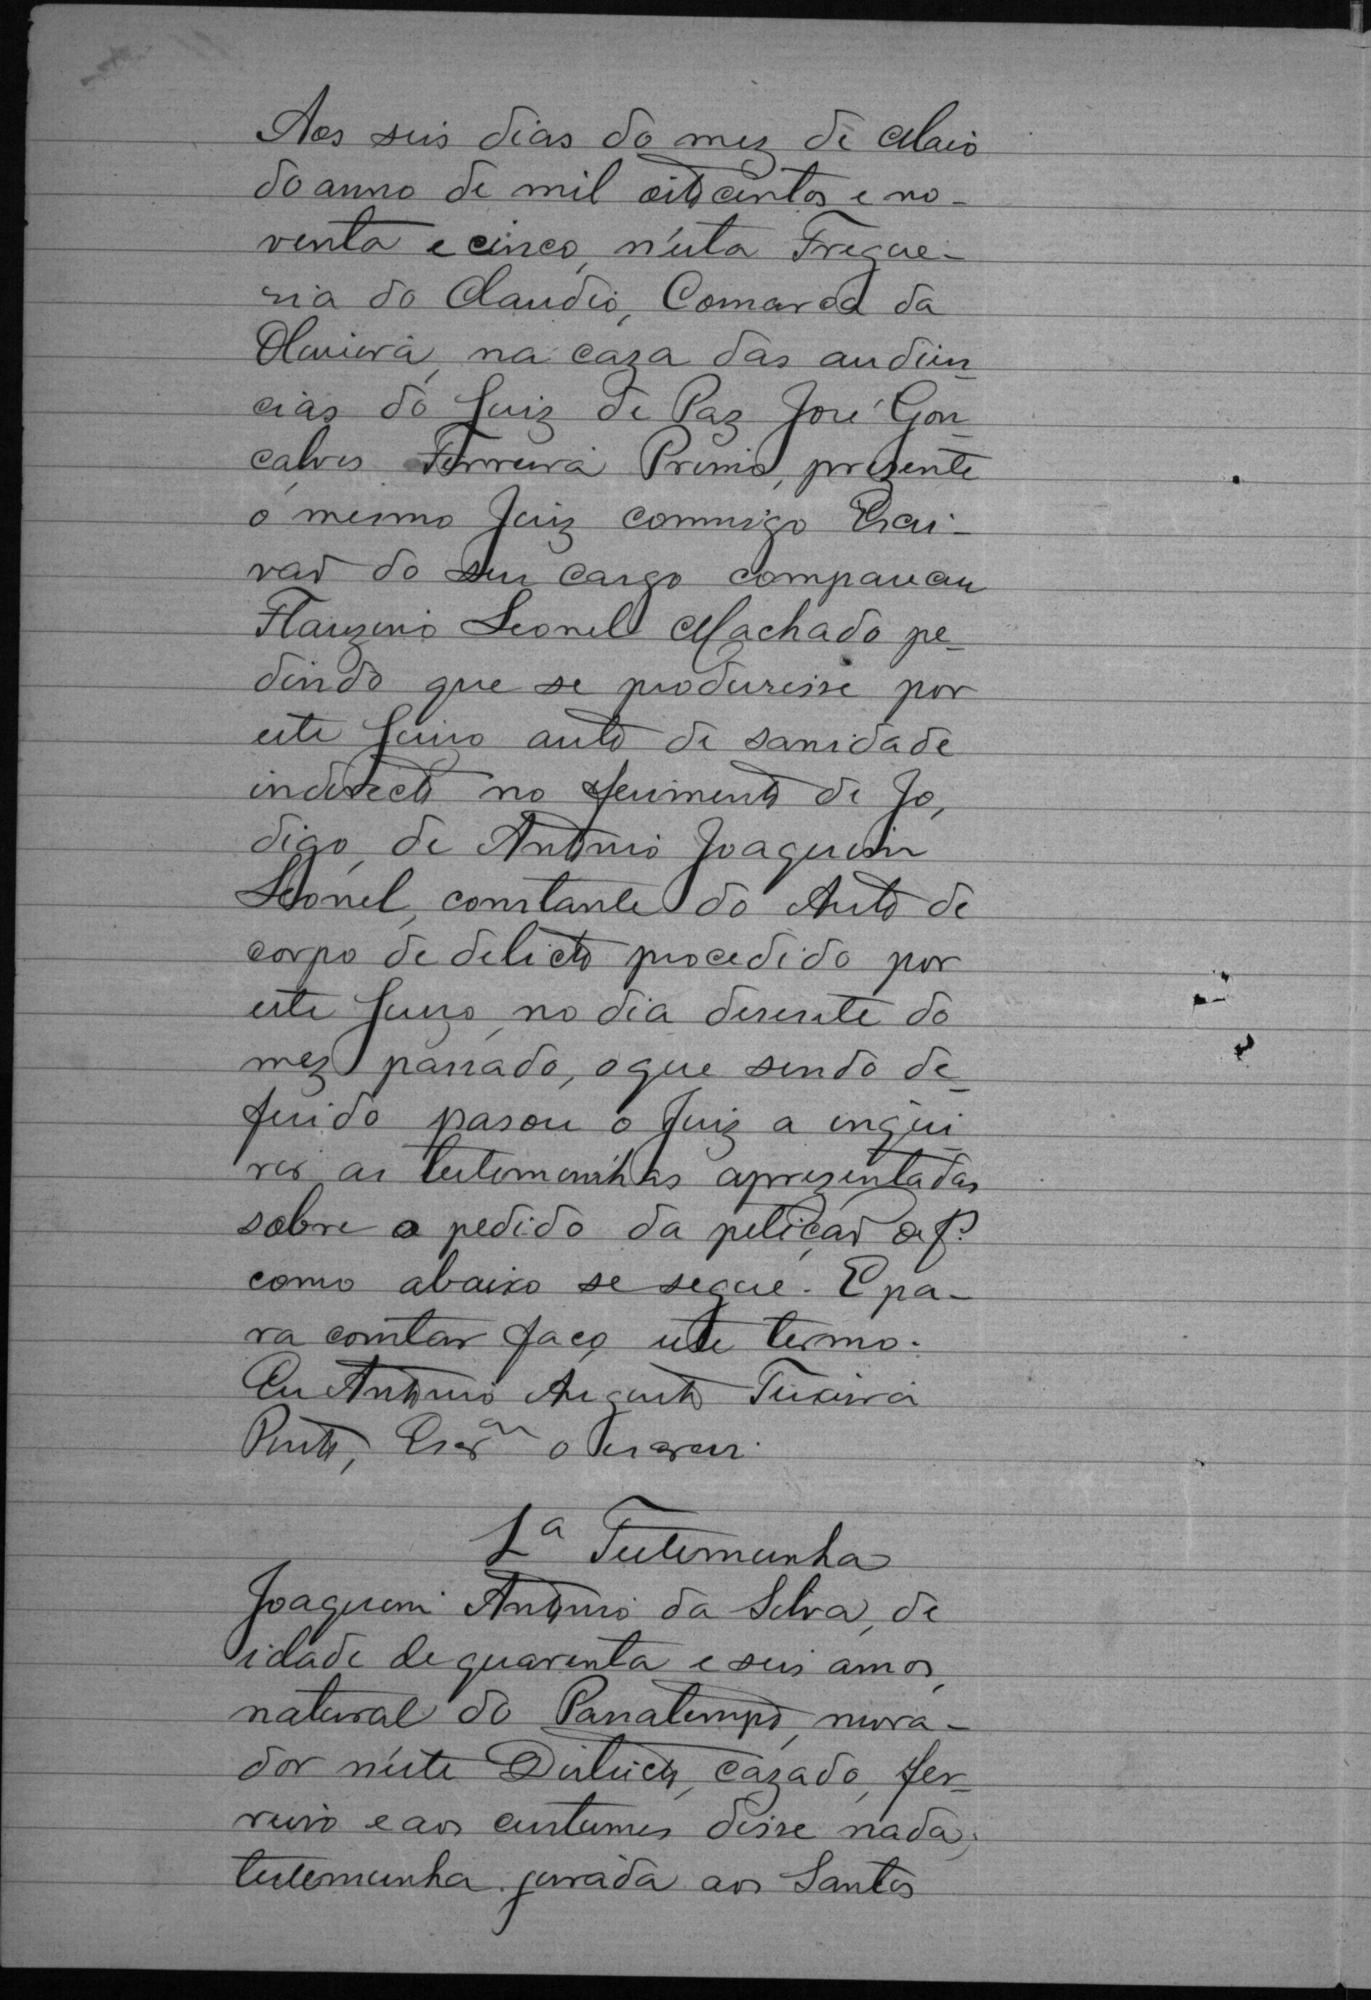 Aos seis dias do mez de Maio
do anno de mil oitocentos e no-
venta e cinco, n'esta Fregue-
sia do Claudio, Comarca da
Oliveira, na caza das audien-
cias do Juiz de Paz José Gon-
çalves Ferreira Primo, prezente
o mesmo Juiz commigo Escri-
vão do seu cargo compareceu
Flauzino Leonel Machado pe-
dindo que se produzisse por
este Juizo auto de sanidade
indirecto no ferimento de Jo,
digo, de Antonio Joaquim
Leonel, constante do Auto de
corpo de delicto procedido por
este Juizo no dia desesete do
mez passado, o que sendo de-
ferido pasou o Juiz a inqui-
rir as testemunhas aprezentadas
sobre o pedido da petição de f.
como abaixo se segue. E pa-
ra constar faço este termo.
Eu Antonio Augusto Teixeira
Pinto, Escr.am o escrevi.
1ª Testemunha
Joaquim Antonio da Silva, de
idade de quarenta e seis annos,
natural do Passatempo, mora-
dor n'este Districto, cazado, fer-
reiro e aos custumes disse nada;
testemunha jurada aos Santos